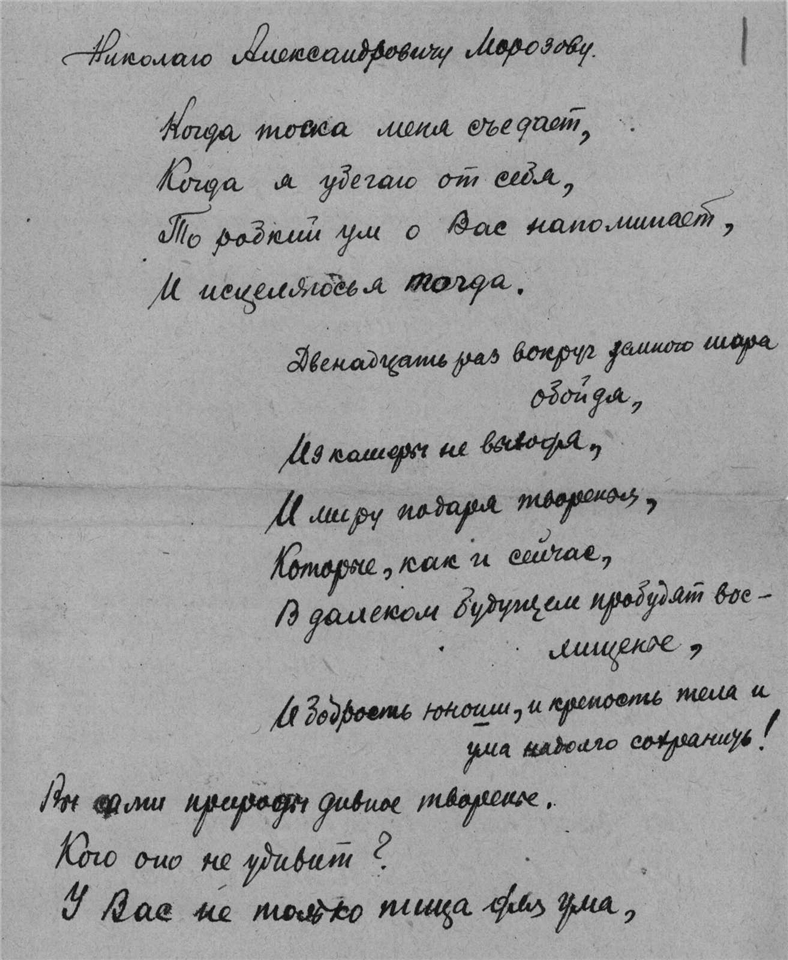 1
Николаю Александровичу Морозову.
Когда тоска меня съедает,
Когда я убегаю от себя,
То робкий ум о Вас напоминает,
И исцеляюсь я тогда.
Двенадцать раз вокруг земного шара
обойдя,
Из камеры не выходя,
И миру подаря творенья,
Которые, как и сейчас,
В далеком будущем пробудят вос-
хищенье,
И бодрость юноши, и крепость тела и
ума надолго сохраниць!
Вы сами природы дивное творенье.
Кого оно не удивит?
У Вас не только пища для ума,